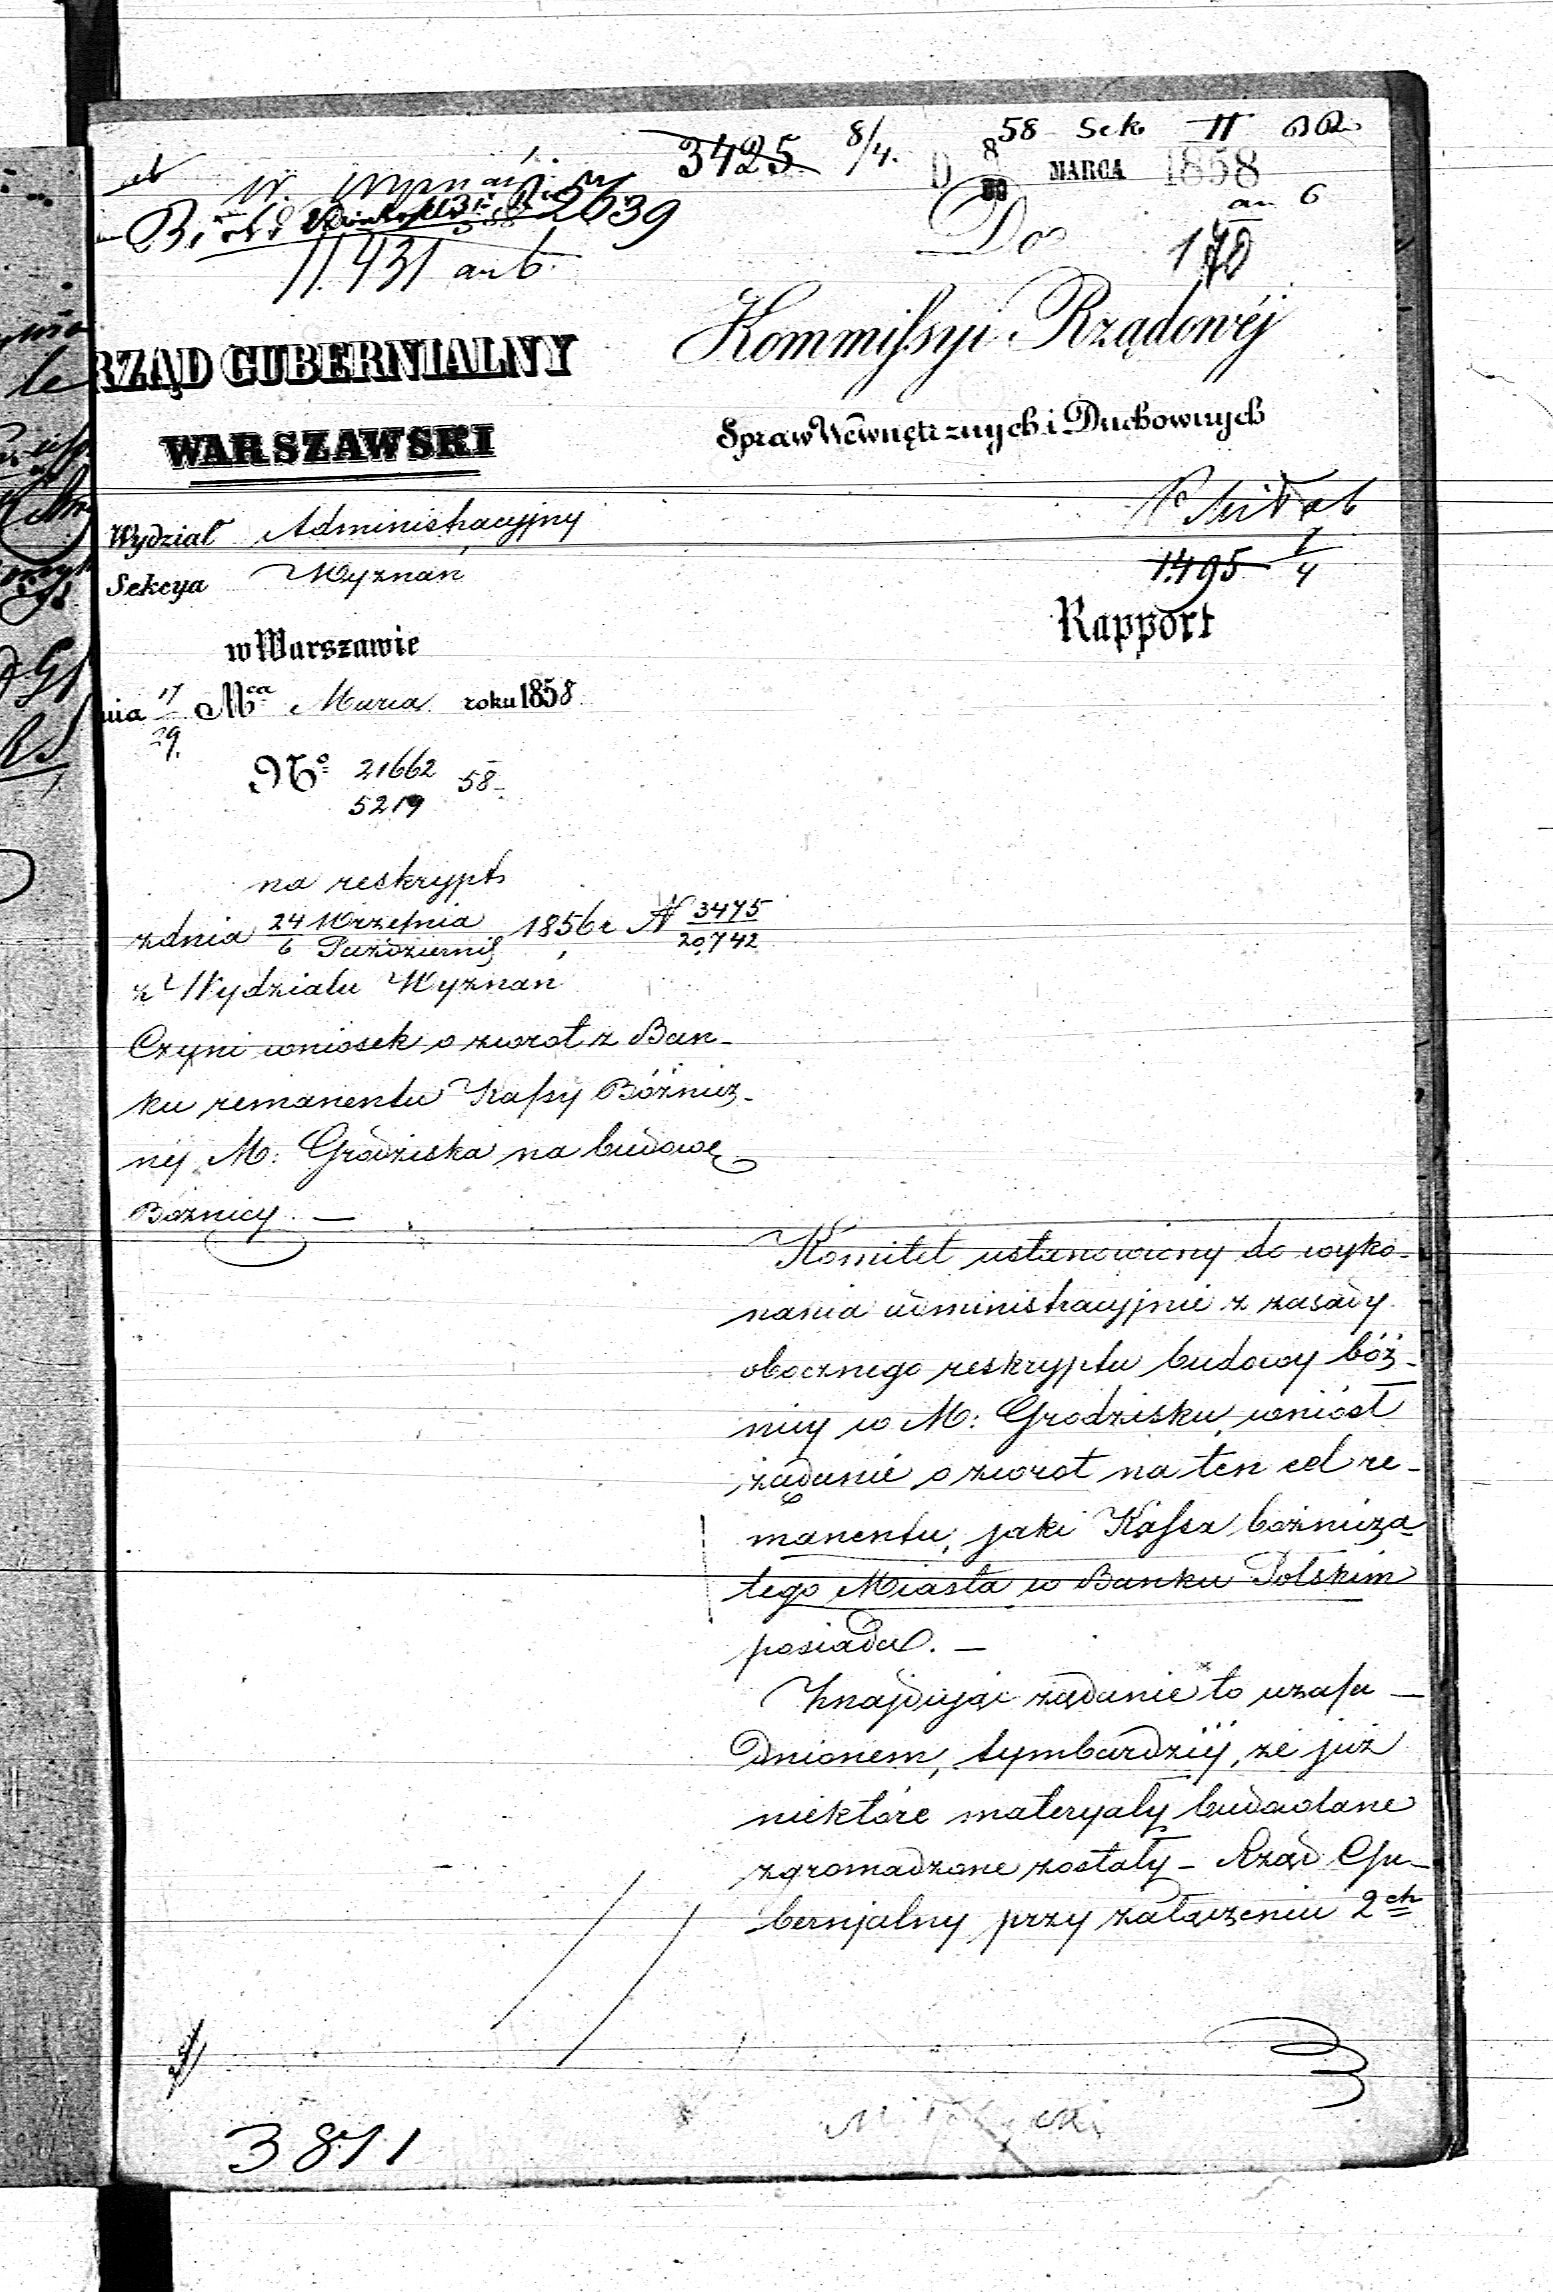 3425 8/4.
58 Sek II
D 8 MARCA 1858
W. Wyznań
2639
11.431
Do
170
RZĄD GUBERNIALNY
WARSZAWSKI
Kommissyi Rządowéj
Spraw Wewnętrznych i Duchownych
Wydział Administracyjny
Sekcya Wyznań
1495 1/4
Rapport
w Warszawie
nia 17/29 Mca Marca roku 1858
No 21662/5219 58
na reskrypt
z dnia 24 Września/6 Październik 1856 r N 3475/20,742
z Wydziału Wyznań
Czyni wniosek o zwrot z Ban-
ku remanentu Kassy Bóżnicz-
néj M: Grodziska na budowę
Bóżnicy. —
Komitet ustanowiony do wyko-
nania administracyjnie z zasady
obocznego reskryptu budowy bóż-
nicy w M: Grodzisku, wniósł
żądanie o zwrot na ten cel re-
manentu, jaki Kassa bożnicza
tego Miasta w Banku Polskim
posiada. —
Znajdując żądanie to uzasa-
dnionem, tymbardziéj, że już
niektóre materyały budowlane
zgromadzone zostały – Rząd Gu-
bernjalny przy załączeniu 2ch
3871